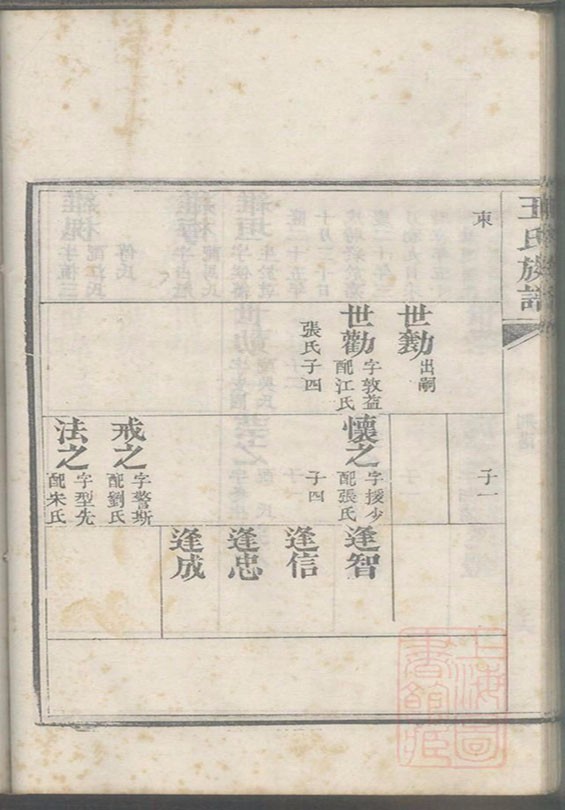 王氏族譜
東
子一
世勷
出嗣
世勸
字敦益
配江氏
張氏子四
懷之
字援少
配張氏
子四
逢智
逢信
逢忠
逢成
戒之
字警斯
配劉氏
法之
字型先
配朱氏
上海圖
書館藏